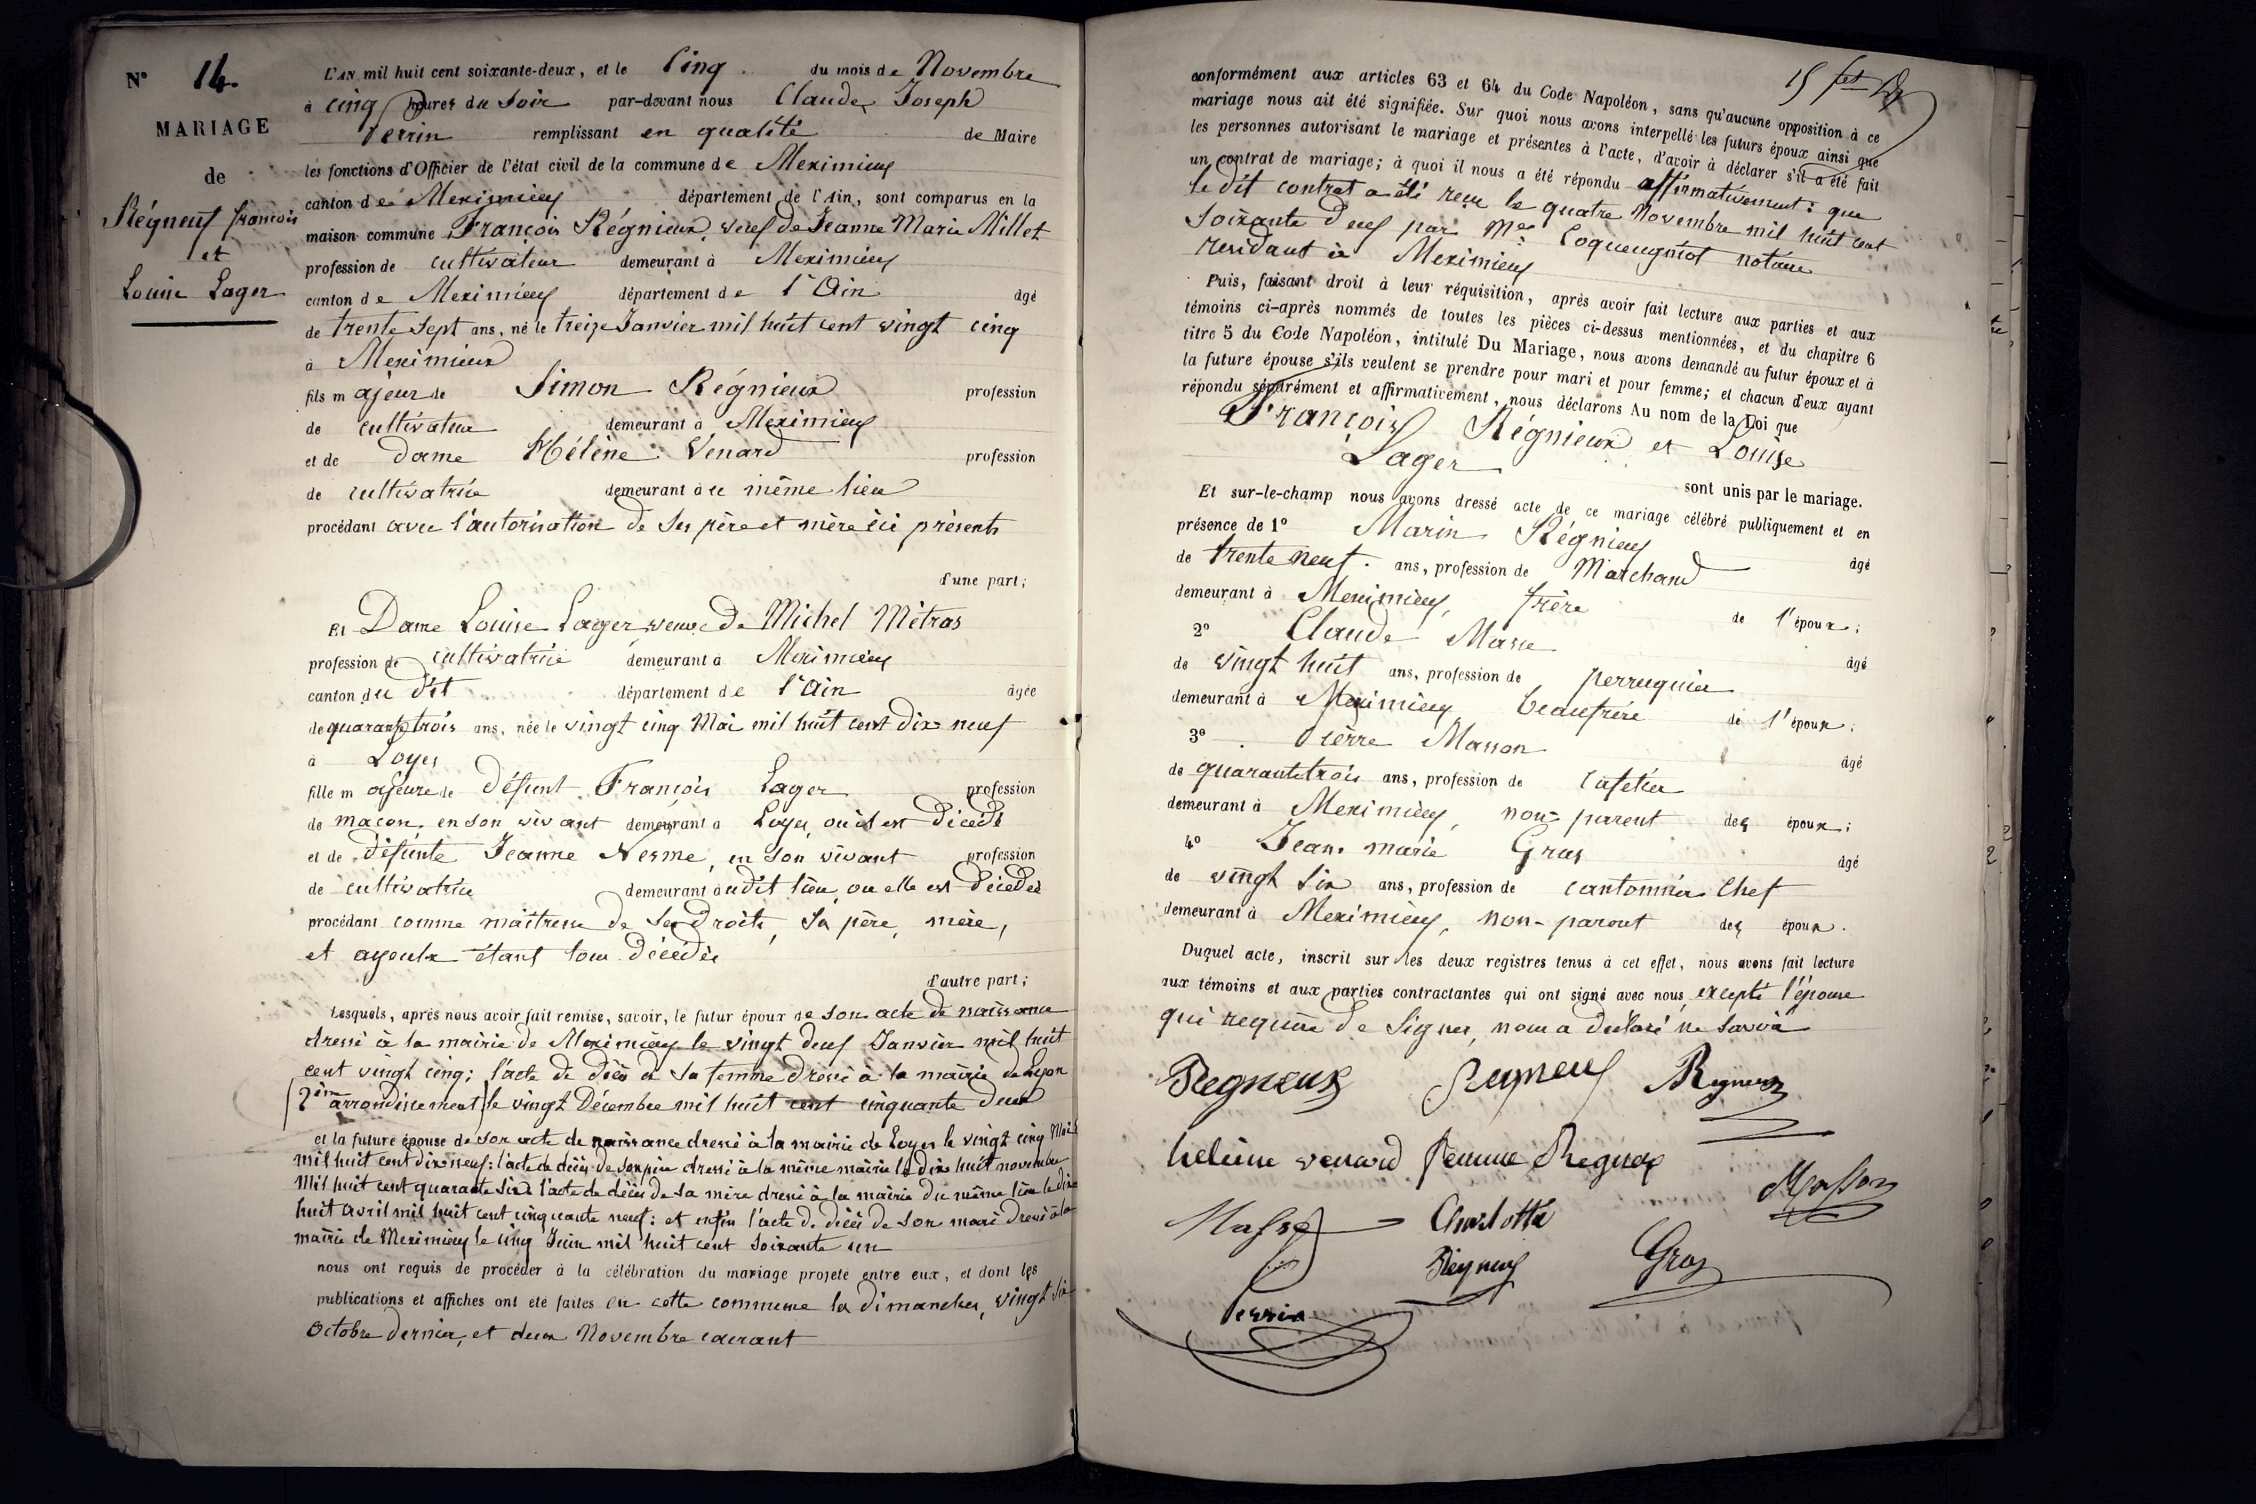 N° 14.
MARIAGE
de
Régneux françois
et
Louise Lager
L'AN mil huit cent soixante-deux, et le Cinq du mois de Novembre
à cinq heures du Soir par-devant nous Claude Joseph
Perrin remplissant en qualité de Maire
les fonctions d'Officier de l'état civil de la commune de Meximieux
canton de Meximieux département de l'Ain, sont comparus en la
maison commune François Régnieux, veuf de Jeanne Marie Millet
profession de cultivateur demeurant à Meximieux
canton de Meximieux département de l'Ain âgé
de trente sept ans, né le treize Janvier mil huit cent vingt cinq
à Meximieux
fils majeur de Simon Régnieux profession
de cultivateur demeurant à Meximieux
et de dame Hélène Venard profession
de cultivatrice demeurant à u même lieu
procédant avec l'autorisation de Ses père et mère ici présents
d'une part;
Et Dame Louise Lager, veuve de Michel Mètras
profession de cultivatrice demeurant à Meximieux
canton du dit département de l'Ain âgée
de quarante trois ans, née le vingt cinq Mai mil huit cent dix neuf
à Loyes
fille majeure de défunt François Lager profession
de macon, en son vivant demeurant à Loyes, où il est décédé
et de défunte Jeanne Nesme, en son vivant profession
de cultivatrice demeurant audit lieu, ou elle est décédée
procédant comme maitresse de Ses droits, Sa père, mère,
et ayeulx étant tous décédés
d'autre part;
Lesquels, après nous avoir fait remise, savoir, le futur époux de son acte de naissance
dressé à la mairie de Meximieux le vingt deux Janvier mil huit
cent vingt cinq; l'acte de décès de sa femme dressé à la mairie de Lyon
(2ème arrondissement) le vingt Décembre mil huit cent cinquante deux
et la future épouse de son acte de naissance dressé à la mairie de Loyes le vingt cinq Mai
mil huit cent dix neuf: l'acte de décès de son père dressé à la même mairie le dix huit novembre
mil huit cent quarante six: l'acte de décès de sa mère dressé à la mairie du même lieu le dix
huit avril mil huit cent cinquante neuf: et enfin l'acte de décès de son mari dressé à la
mairie de Meximieux le cinq Juin mil huit cent soixante un
nous ont requis de procéder à la célébration du mariage projeté entre eux, et dont les
publications et affiches ont été faites en cette commune les dimanches, vingt six
Octobre dernier, et deux Novembre courant
15 fet
conformément aux articles 63 et 64 du Code Napoléon, sans qu'aucune opposition à ce
mariage nous ait été signifiée. Sur quoi nous avons interpellé les futurs époux ainsi que
les personnes autorisant le mariage et présentes à l'acte, d'avoir à déclarer s'il a été fait
un contrat de mariage; à quoi il nous a été répondu affirmativement: que
le dit contrat a été reçu le quatre Novembre mil huit cent
soixante deux par Me Coqueugniot notaire
residant à Meximieux
Puis, faisant droit à leur réquisition, après avoir fait lecture aux parties et aux
témoins ci-après nommés de toutes les pièces ci-dessus mentionnées, et du chapitre 6
titre 5 du Code Napoléon, intitulé Du Mariage, nous avons demandé au futur époux et à
la future épouse s'ils veulent se prendre pour mari et pour femme; et chacun d'eux ayant
répondu séparément et affirmativement, nous déclarons Au nom de la Loi que
François Régnieux et Louise
Lager
sont unis par le mariage.
Et sur-le-champ nous avons dressé acte de ce mariage célébré publiquement et en
présence de 1° Marin Régnieux âgé
de trente neuf ans, profession de Marchand
demeurant à Meximieux, frère de l'époux;
2° Claude Masse âgé
de vingt huit ans, profession de perruquier
demeurant à Meximieux beaufrère de l'époux;
3° Pierre Masson âgé
de quarante trois ans, profession de cafetier
demeurant à Meximieux, non-parent des époux;
4° Jean marie Gras âgé
de vingt Six ans, profession de cantonnier Chef
demeurant à Meximieux, non-parent des époux.
Duquel acte, inscrit sur les deux registres tenus à cet effet, nous avons fait lecture
aux témoins et aux parties contractantes qui ont signé avec nous, excepté l'épouse
qui requise de Signer, nous a déclaré ne savoir
Regneux Regneux Regneux
heleine venard femme Régneux
Masson
Masse Charlotte
Regneux Gras
Perrin